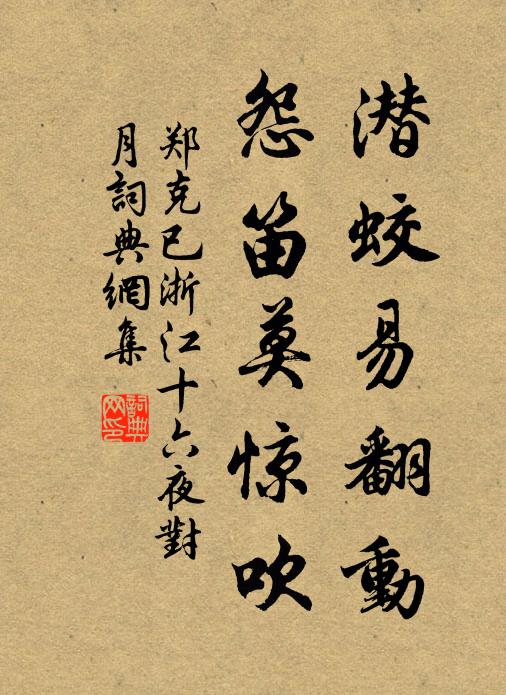 潜蛟易翻動
怨笛莫惊吹
郑克己浙江十六夜對
月詞典網集
詞典
网印